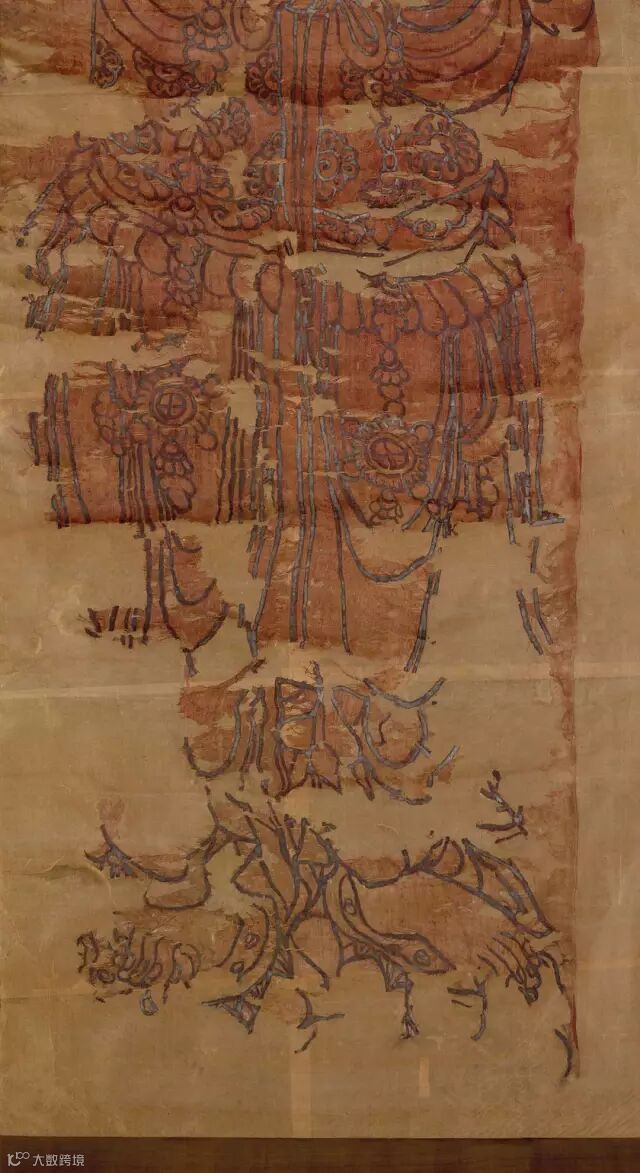 10100 大数跨境